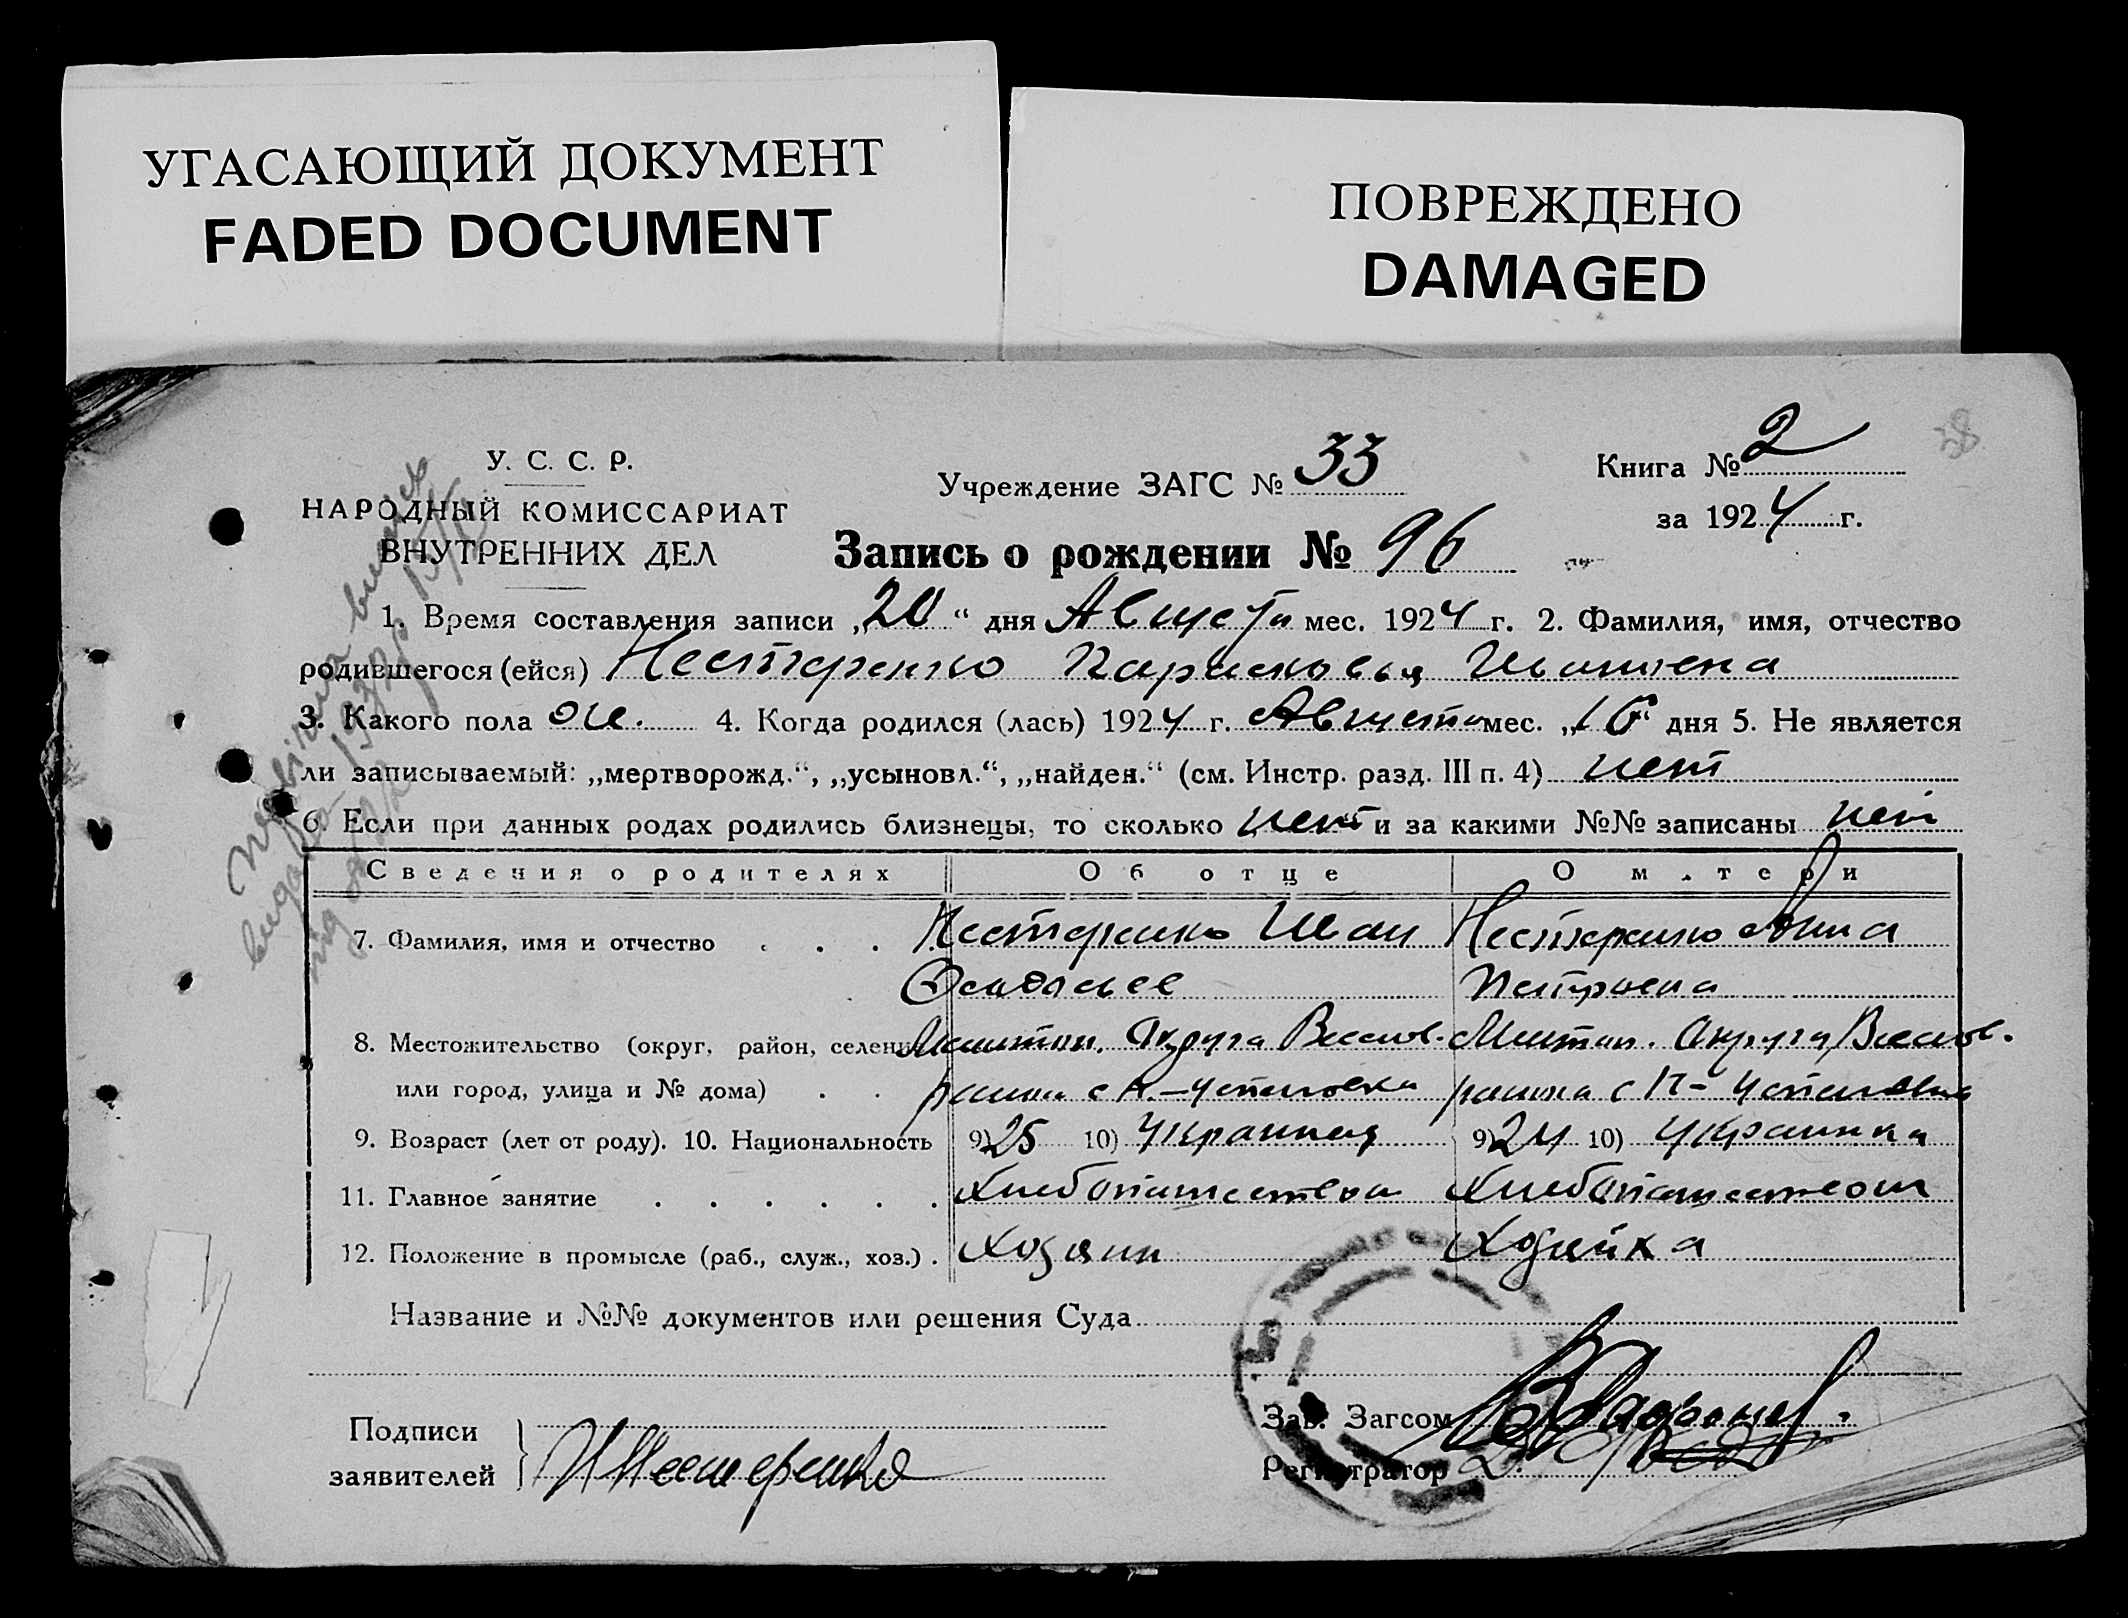 УГАСАЮЩИЙ ДОКУМЕНТ
FADED DOCUMENT
ПОВРЕЖДЕНО
DAMAGED
38
У. С. С. Р.
НАРОДНЫЙ КОМИССАРИАТ
ВНУТРЕННИХ ДЕЛ
Учреждение ЗАГС № 33
Книга № 2
за 1924 г.
Запись о рождении № 96
1. Время составления записи „20“ дня Августа мес. 1924 г. 2. Фамилия, имя, отчество
родившегося (ейся) Нестеренко Парасковья Ивановна
3. Какого пола ж. 4. Когда родился (лась) 1924 г. Августа мес. „16“ дня 5. Не является
ли записываемый: „мертворожд.“, „усыновл.“, „найден.“ (см. Инстр. разд. III п. 4) нет
6. Если при данных родах родились близнецы, то сколько нет и за какими №№ записаны нет
Сведения о родителях Об отце О матери
7. Фамилия, имя и отчество Нестеренко Иван Нестеренко Анна
Петровна
8. Местожительство (округ, район, селение Мелитоп. Округа Веселов. Мелитоп. Округа Веселов.
или город, улица и № дома) района с района с
9. Возраст (лет от роду). 10. Национальность 9) 25 10) Украинец 9) 24 10) Украинка
11. Главное занятие Хлебопашество Хлебопашество
12. Положение в промысле (раб., служ., хоз.) Хозяин Хозяйка
Название и №№ документов или решения Суда
Подписи
заявителей И Нестеренко
Зав. Загсом
Регистратор